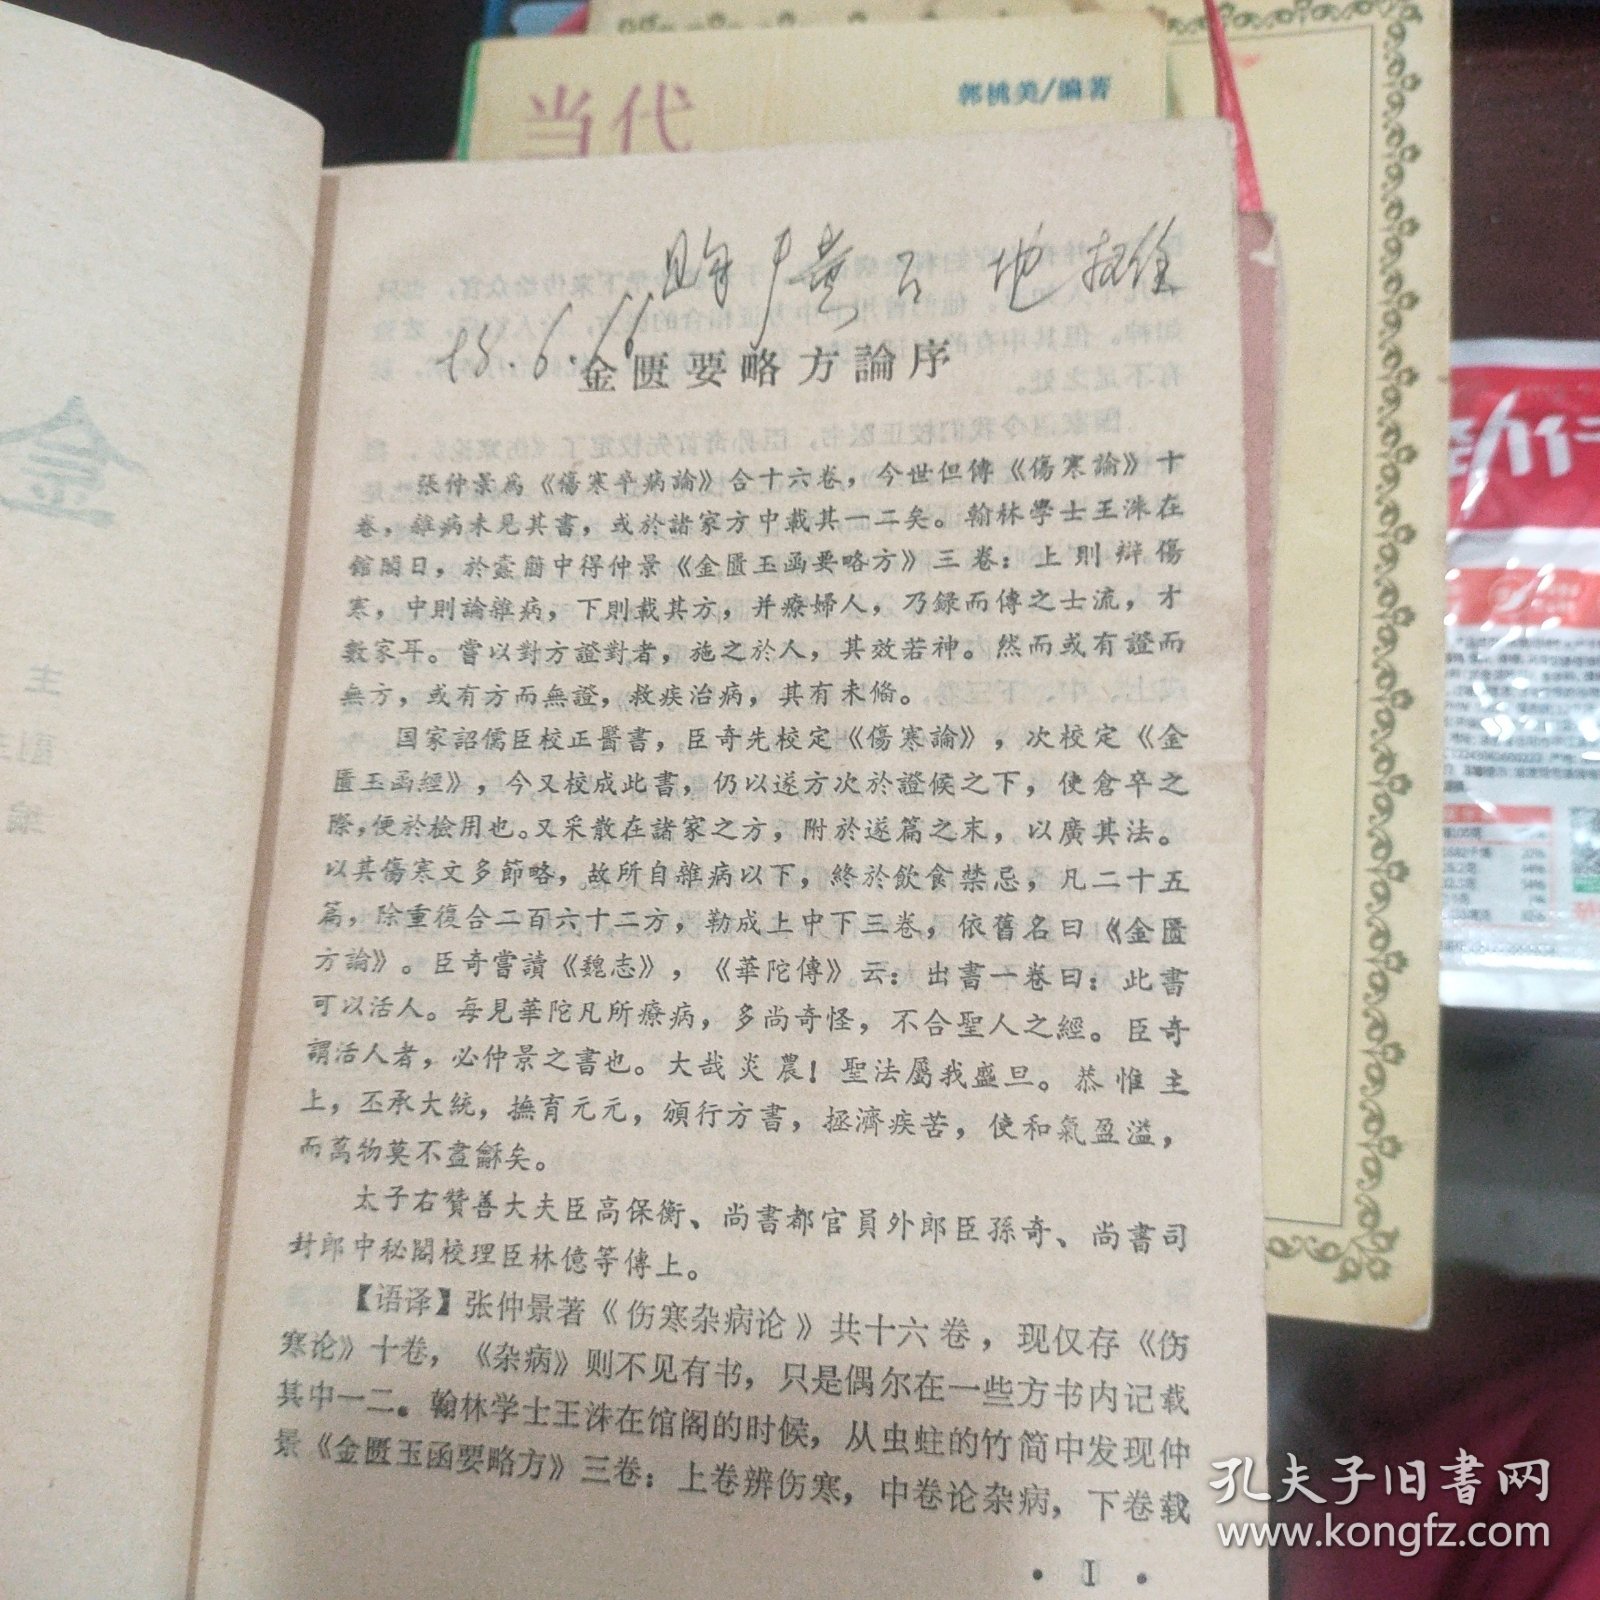 当代
郭桃美/编著
金
主
编
购 黄石 地摊
18.6.16
金匮要略方論序
張仲景爲《傷寒卒病論》合十六卷，今世但傳《傷寒論》十
卷，雜病未見其書，或於諸家方中載其一二矣。翰林學士王洙在
館閣日，於蠹簡中得仲景《金匱玉函要略方》三卷：上則辯傷
寒，中則論雜病，下則載其方，并療婦人，乃録而傳之士流，才
數家耳。嘗以對方證對者，施之於人，其效若神。然而或有證而
無方，或有方而無證，救疾治病，其有未俻。
国家詔儒臣校正醫書，臣奇先校定《傷寒論》，次校定《金
匱玉函經》，今又校成此書，仍以逐方次於證候之下，使倉卒之
際，便於檢用也。又采散在諸家之方，附於逐篇之末，以廣其法。
以其傷寒文多節略，故所自雜病以下，終於飲食禁忌，凡二十五
篇，除重復合二百六十二方，勒成上中下三卷，依舊名曰《金匱
方論》。臣奇嘗讀《魏志》，《華陀傳》云：出書一卷曰：此書
可以活人。每見華陀凡所療病，多尚奇怪，不合聖人之經。臣奇
謂活人者，必仲景之書也。大哉炎農！聖法屬我盛旦。恭惟主
上，丕承大統，撫育元元，頒行方書，拯濟疾苦，使和氣盈溢，
而萬物莫不盡龢矣。
太子右贊善大夫臣高保衡、尚書都官員外郎臣孫奇、尚書司
封郎中秘閣校理臣林億等傳上。
【语译】张仲景著《伤寒杂病论》共十六卷，现仅存《伤
寒论》十卷，《杂病》则不见有书，只是偶尔在一些方书内记载
其中一二。翰林学士王洙在馆阁的时候，从虫蛀的竹简中发现仲
景《金匮玉函要略方》三卷：上卷辨伤寒，中卷论杂病，下卷载
· I ·
孔夫子旧书网
www.kongfz.com